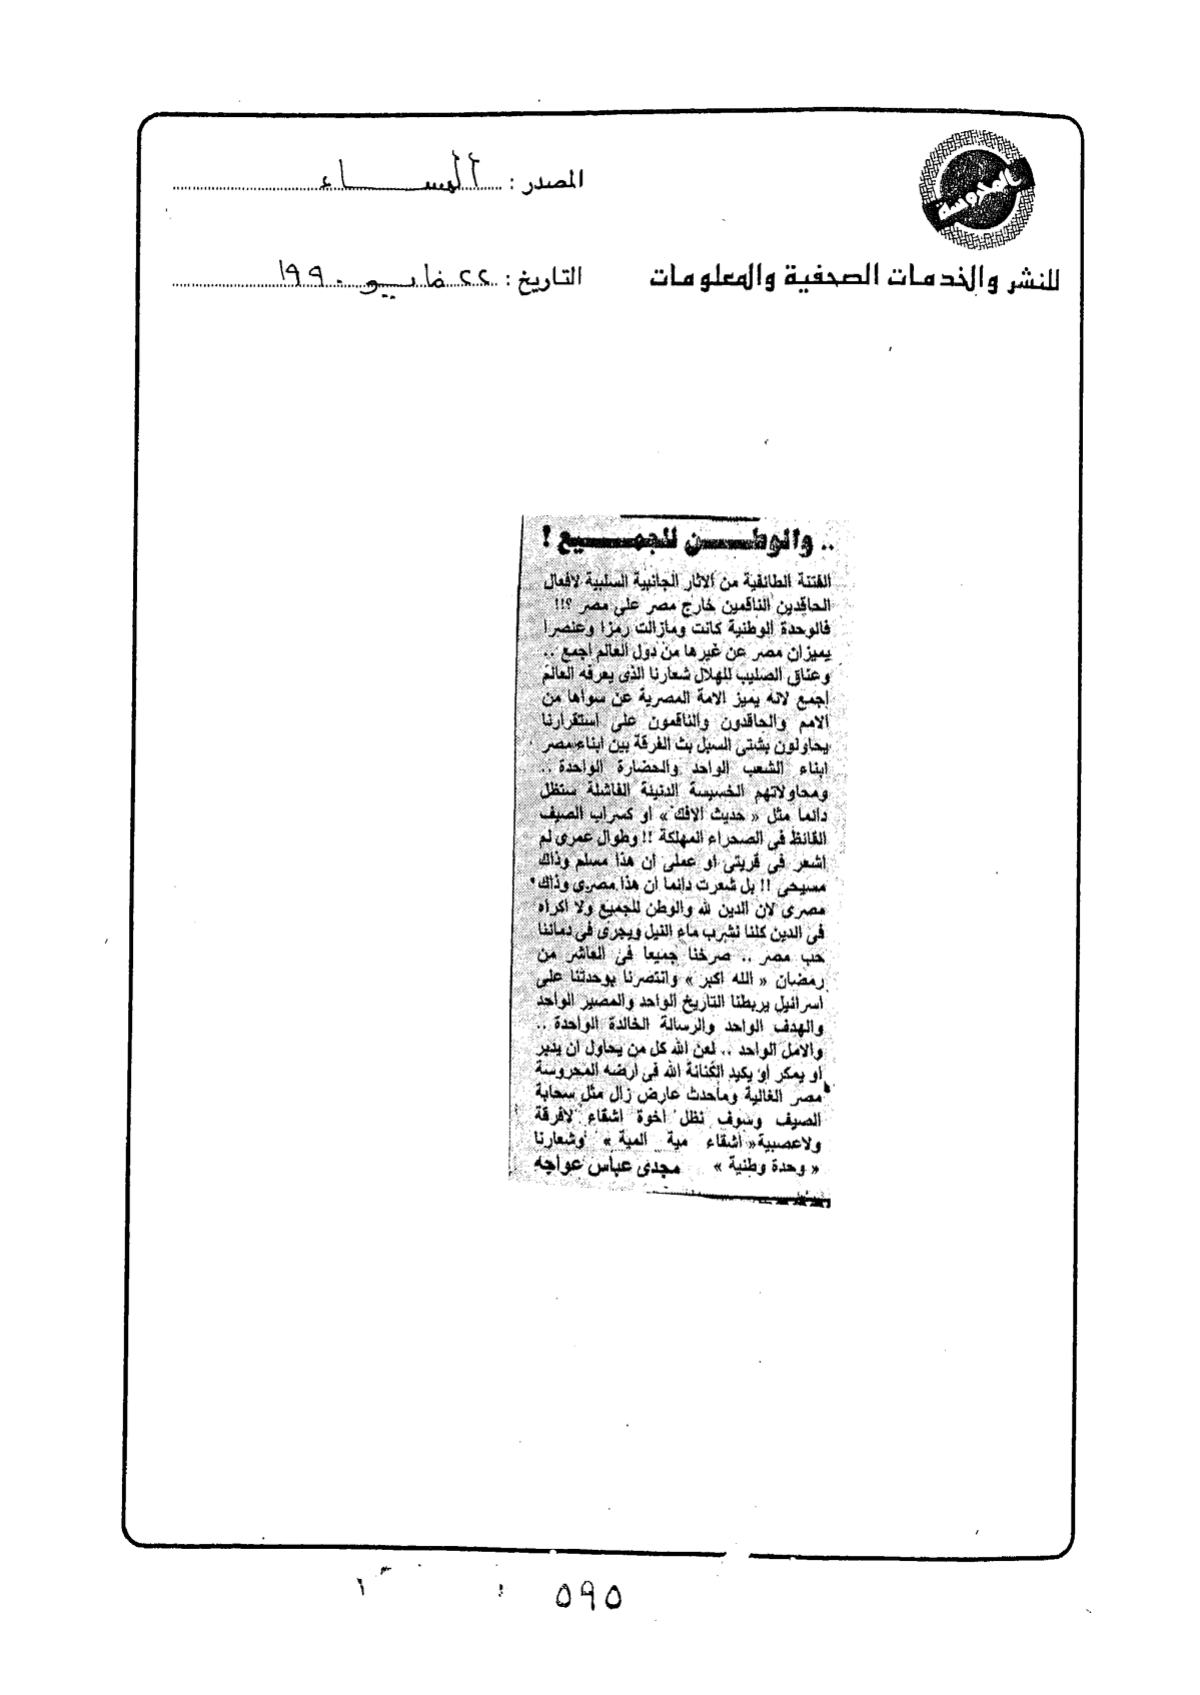 المحروسة
المصدر : المســـاء
للنشر والخدمات الصحفية والمعلومات
التاريخ : ٢٢ مايو ١٩٩٠
.. والوطــن للجمــيع !
الفتنة الطائفية من الاثار الجانبية السلبية لافعال
الحاقدين الناقمين خارج مصر على مصر ؟!!
فالوحدة الوطنية كانت ومازالت رمزا وعنصرا
يميزان مصر عن غيرها من دول العالم اجمع ..
وعناق الصليب للهلال شعارنا الذى يعرفه العالم
اجمع لانه يميز الامة المصرية عن سواها من
الامم والحاقدون والناقمون على استقرارنا
يحاولون بشتى السبل بث الفرقة بين ابناء مصر
ابناء الشعب الواحد والحضارة الواحدة ..
ومحاولاتهم الخسيسة الدنيئة الفاشلة ستظل
دائما مثل « حديث الافك » او كسراب الصيف
القائظ فى الصحراء المهلكة !! وطوال عمرى لم
اشعر فى قريتى او عملى ان هذا مسلم وذاك
مسيحى !! بل شعرت دائما ان هذا مصرى وذاك
مصرى لان الدين لله والوطن للجميع ولا اكراه
فى الدين كلنا نشرب ماء النيل ويجرى فى دمائنا
حب مصر .. صرخنا جميعا فى العاشر من
رمضان « الله اكبر » وانتصرنا بوحدتنا على
اسرائيل يربطنا التاريخ الواحد والمصير الواحد
والهدف الواحد والرسالة الخالدة الواحدة ..
والامل الواحد .. لعن الله كل من يحاول ان يدبر
او يمكر او يكيد لكنانة الله فى ارضه المحروسة
مصر الغالية وماحدث عارض زال مثل سحابة
الصيف وسوف نظل اخوة اشقاء لافرقة
ولاعصبية « اشقاء مية المية » وشعارنا
« وحدة وطنية » مجدى عباس عواجه
٥٩٥